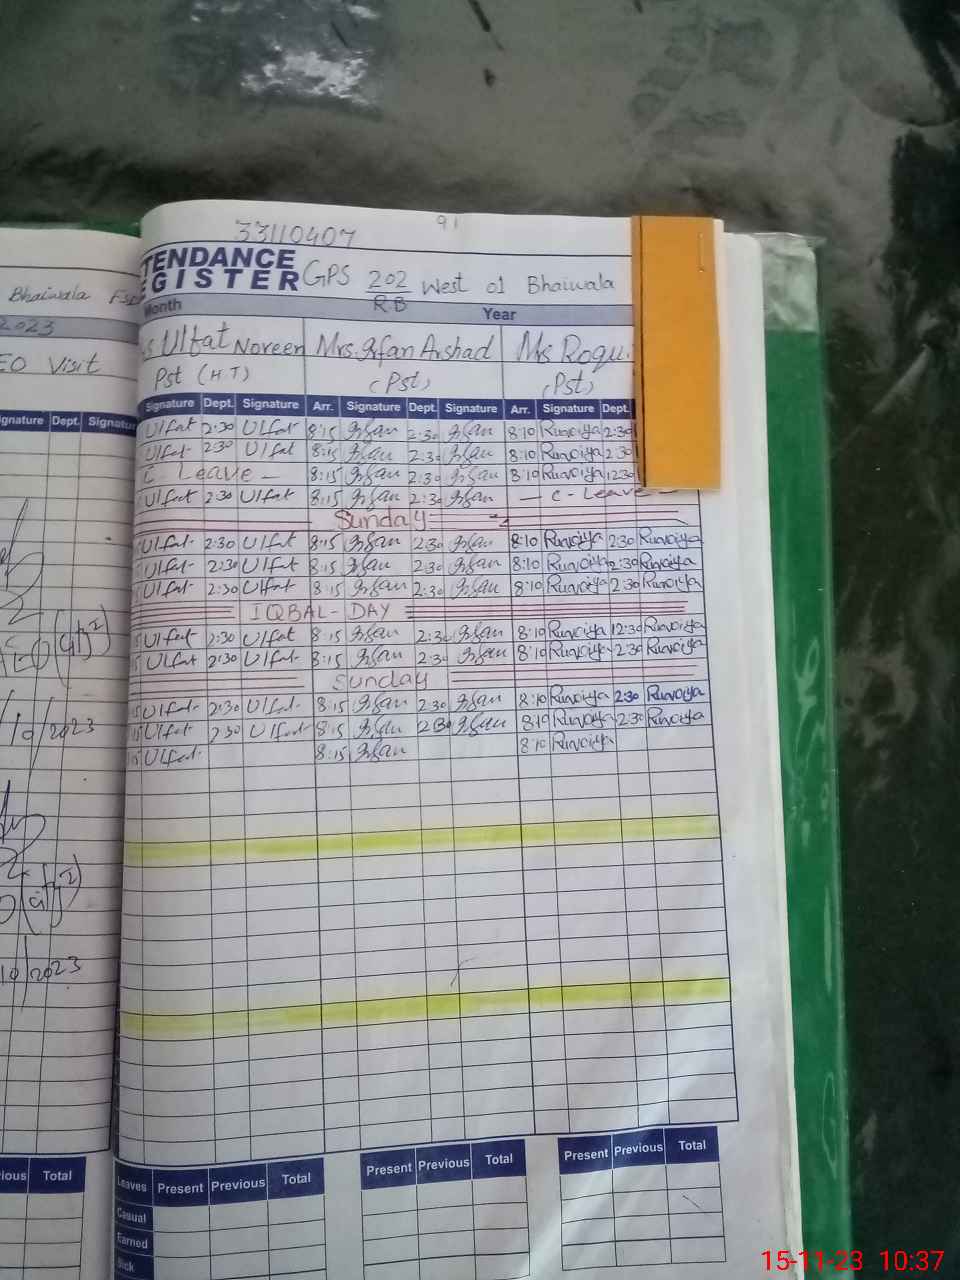 91
33110407
TENDANCE
GISTER GPS 202 West 01 Bhaiwala
RB
Bhaiwala
Month Year
2023
Ulfat Noreen Mrs. Irfan Arshad Ms Roqu
EO Visit
Pst (H.T) (Pst) (Pst)
gnature Dept. Signatur
Signature Dept. Signature Arr. Signature Dept. Signature Arr. Signature Dept.
Ulfat 2:30 Ulfat 8:15 Irfan 2:30 Irfan 8:10 Ruqviya 2:30
Ulfat 2:30 Ulfat 8:15 Irfan 2:30 Irfan 8:10 Ruqviya 2:30
C Leave - 8:15 Irfan 2:30 Irfan 8:10 Ruqviya 12:30
Ulfat 2:30 Ulfat 8:15 Irfan 2:30 Irfan - C - Leave -
Sunday
Ulfat 2:30 Ulfat 8:15 Irfan 2:30 Irfan 8:10 Ruqviya 2:30 Ruqviya
Ulfat 2:30 Ulfat 8:15 Irfan 2:30 Irfan 8:10 Ruqviya 2:30 Ruqviya
Ulfat 2:30 Ulfat 8:15 Irfan 2:30 Irfan 8:10 Ruqviya 2:30 Ruqviya
IQBAL-DAY
Ulfat 2:30 Ulfat 8:15 Irfan 2:30 Irfan 8:10 Ruqviya 12:30 Ruqviya
Ulfat 2:30 Ulfat 8:15 Irfan 2:30 Irfan 8:10 Ruqviya 2:30 Ruqviya
Sunday
Ulfat 2:30 Ulfat 8:15 Irfan 2:30 Irfan 8:10 Ruqviya 2:30 Ruqviya
Ulfat 2:30 Ulfat 8:15 Irfan 2:30 Irfan 8:10 Ruqviya 2:30 Ruqviya
Ulfat 8:15 Irfan 8:10 Ruqviya
/10/2023
10/2023
ious Total
Leaves Present Previous Total Present Previous Total Present Previous Total
Casual
Earned
Sick
15-11-23 10:37